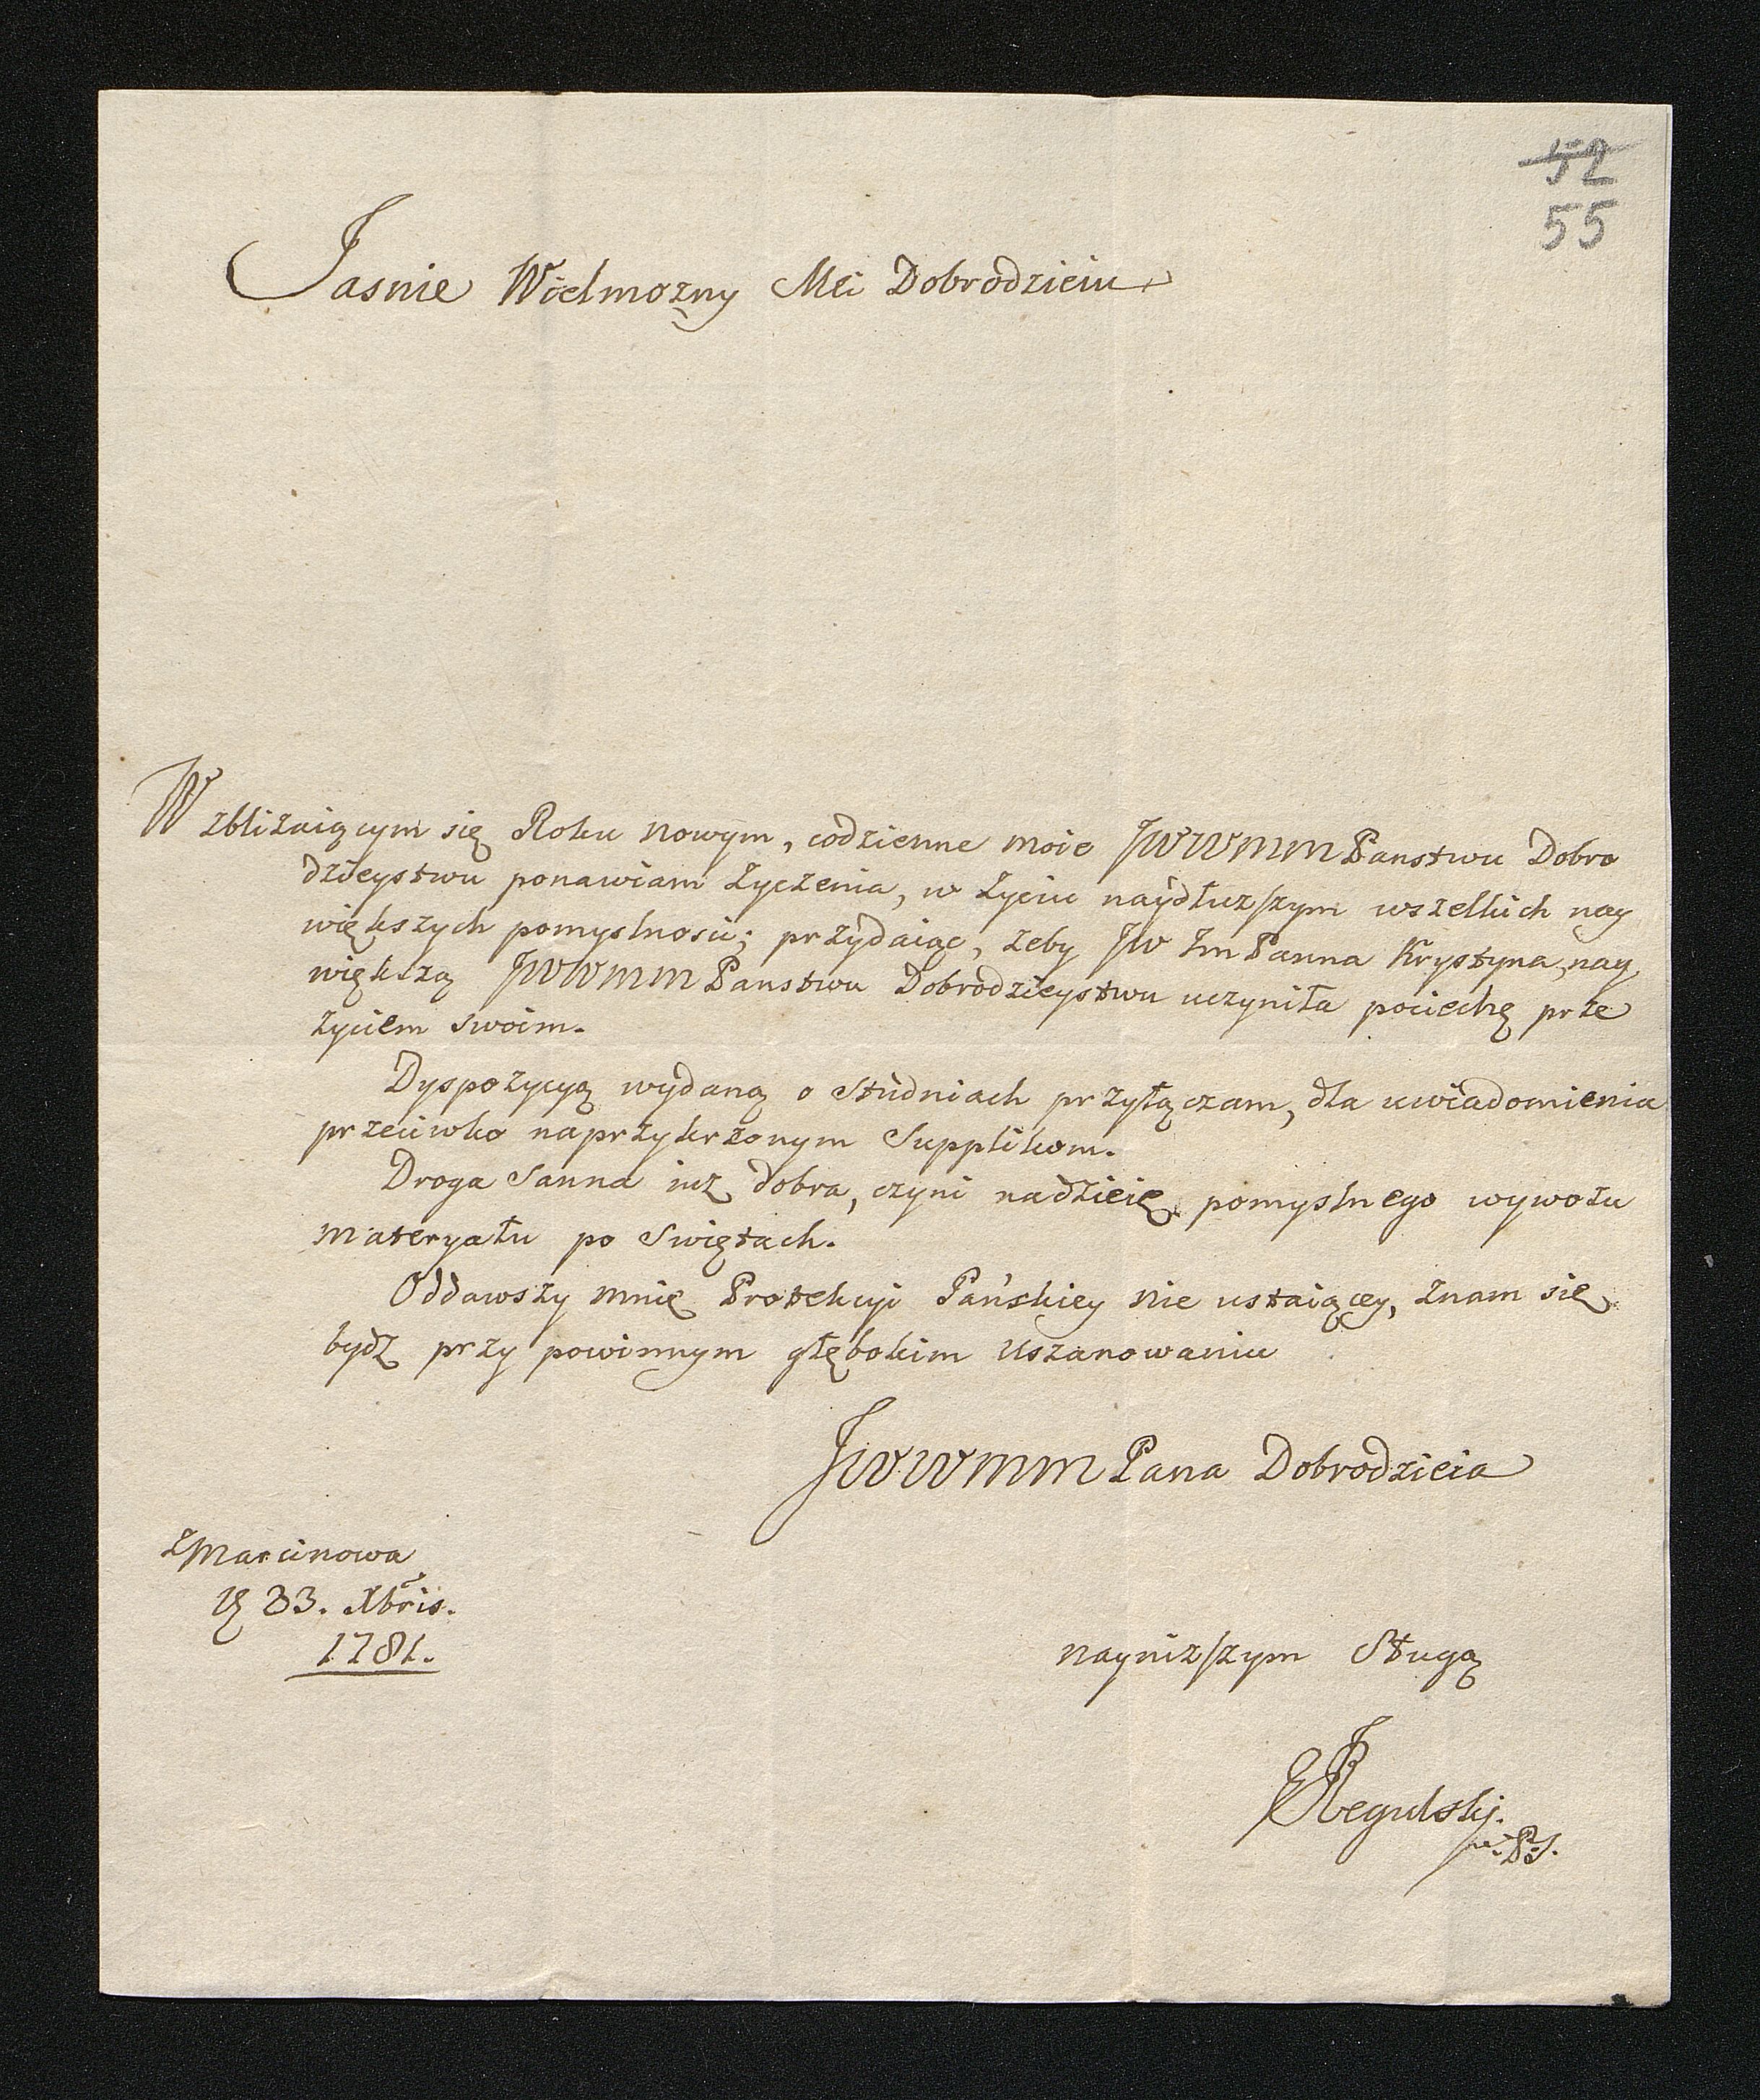 52
55
Jasnie Wielmozny Mci Dobrodzieiu
W zblizaiącym się Roku nowym, codzienne moie JWWMM Panstwu Dobro
dzieystwu ponawiam życzenia, w życiu naydłuzszym wszelkich nay
większych pomyslnosci; przydaiąc, zeby JW Im Panna Krystyna nay
większą JWWMM Panstwu Dobrodzieystwu uczyniła pociechę prze
zyciem swoim.
Dyspozycyą wydaną o Studniach przyłączam, dla uwiadomienia
przeciwko naprzykrzonym Supplikom.
Droga Sanna iuz dobra, czyni nadzieię pomyslnego wywozu
materyału po Swiętach.
Oddawszy mnię Protekcyi Pańskiey nie ustaiącey, znam się
bydz przy powinnym głębokim uszanowaniu
JWWMM Pana Dobrodzieia
z Marcinowa
Xbris.
1781.
nayniższym Sługą
Regulski.